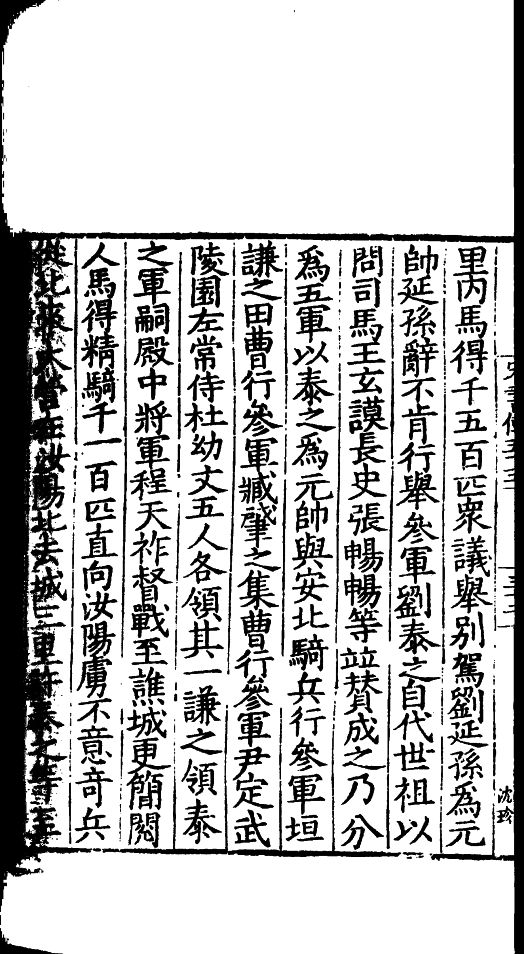 里内馬得千五百匹衆議舉别駕劉延孫爲元
帥延孫辭不肯行舉參軍劉泰之自代世祖以
問司馬王玄謨長史張暢暢等竝賛成之乃分
爲五軍以泰之爲元帥與安北騎兵行參軍垣
謙之田曹行參軍臧肇之集曹行參軍尹定武
陵園左常侍杜幼文五人各領其一謙之領泰
之軍嗣殿中將軍程天祚督戰至譙城更簡閱
人馬得精騎千一百匹直向汝陽虜不意奇兵
從北來大營在汝陽北去城三里許泰之等至
沈珍